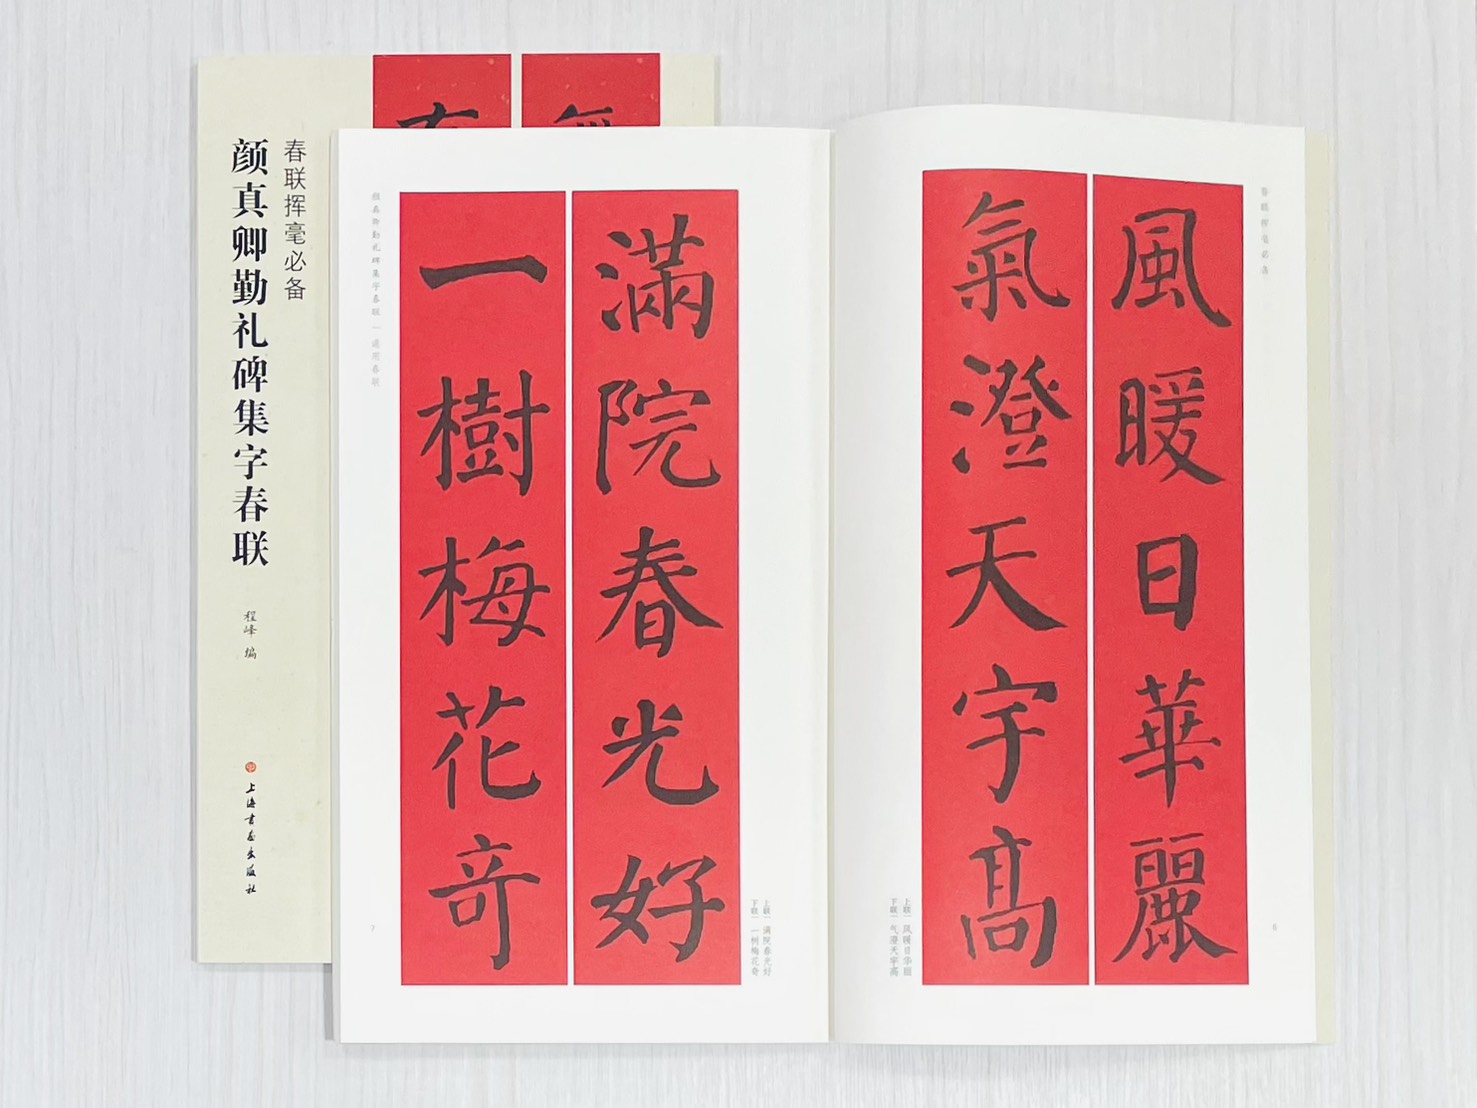 春联挥毫必备
颜真卿勤礼碑集字春联
程峰 编
上海书画出版社
春联挥毫必备
風暖日華麗
氣澄天宇高
上联｜风暖日华丽
下联｜气澄天宇高
6
滿院春光好
一樹梅花奇
上联｜满院春光好
下联｜一树梅花奇
颜真卿勤礼碑集字春联｜通用春联
7